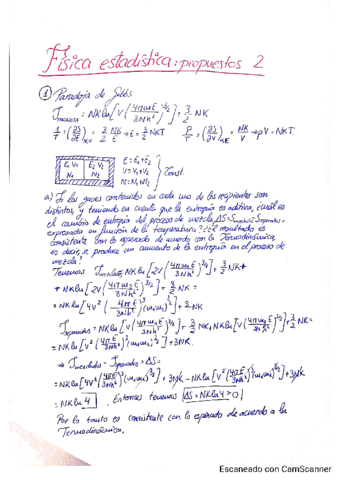 Física estadística: propuestos 2
① Paradoja de Gibbs
S = NK ln[V(4πmE/3Nh²)^3/2] + 3/2 NK
1/T = (∂S/∂E)_N,V = 3/2 NK/E → E = 3/2 NKT P/T = (∂S/∂V)_N,E = NK/V → pV = NKT
E₁ V₁ N₁ E₂ V₂ N₂
E = E₁+E₂
V = V₁+V₂
N = N₁+N₂
Const.
a) Si los gases contenidos en cada uno de los recipientes son
distintos, y teniendo en cuenta que la entropía es aditiva, ¿cuál es
el cambio de entropía del proceso de mezcla, ΔS =
expresado en función de la temperatura? ¿El resultado es
consistente con lo esperado de acuerdo con la Termodinámica,
es decir, se produce un aumento de la entropía en el proceso de
mezcla?
Tenemos = NK ln[2V(4πm₁E/3Nh²)^3/2] + 3/2 NK +
+ NK ln[2V(4πm₂E/3Nh²)^3/2] + 3/2 NK =
= NK ln[4V²(4πE/3Nh²)³(m₁m₂)^3/2] + 3NK
= NK ln[V(4πm₁E/3Nh²)^3/2] + 3/2 NK + NK ln[V(4πm₂E/3Nh²)^3/2] + 3/2 NK =
= NK ln[V²(4πE/3Nh²)³(m₁m₂)^3/2] + 3NK
→ = ΔS =
= NK ln[4V²(4πE/3Nh²)³(m₁m₂)^3/2] + 3NK - NK ln[V²(4πE/3Nh²)³(m₁m₂)^3/2] + 3NK
= NK ln 4. Entonces tenemos ΔS = NK ln 4 > 0
Por lo tanto es consistente con lo esperado de acuerdo a la
Termodinámica.
Escaneado con CamScanner